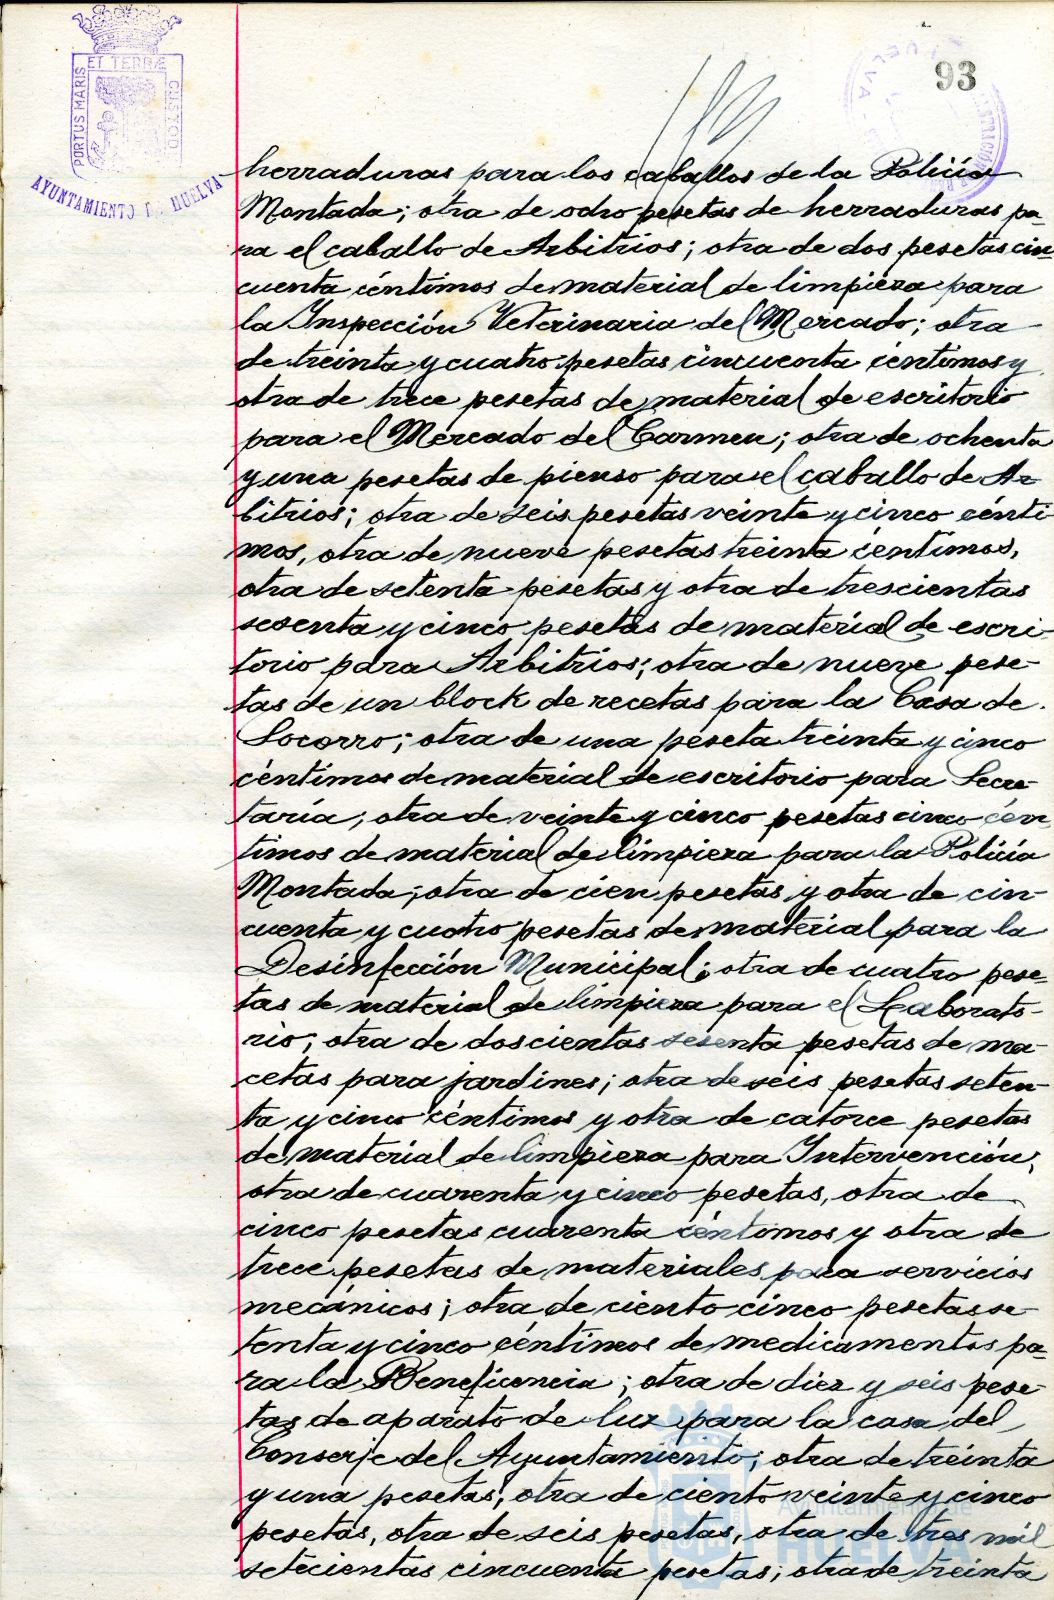 93
ET TERRÆ
PORTUS MARIS
CUSTOD
AYUNTAMIENTO DE HUELVA
herraduras para los caballos de la Policía
Montada; otra de ocho pesetas de herraduras pa-
ra el caballo de Arbitrios; otra de dos pesetas cin-
cuenta céntimos de material de limpieza para
la Inspección Veterinaria del Mercado; otra
de treinta y cuatro pesetas cincuenta céntimos y
otra de trece pesetas de material de escritorio
para el Mercado del Carmen; otra de ochenta
y una pesetas de pienso para el caballo de Ar-
bitrios; otra de seis pesetas veinte y cinco cénti-
mos, otra de nueve pesetas treinta céntimos,
otra de setenta pesetas y otra de trescientas
sesenta y cinco pesetas de material de escri-
torio para Arbitrios; otra de nueve pese-
tas de un block de recetas para la Casa de
Socorro; otra de una peseta treinta y cinco
céntimos de material de escritorio para Secre-
taría; otra de veinte y cinco pesetas cinco cén-
timos de material de limpieza para la Policía
Montada; otra de cien pesetas y otra de cin-
cuenta y cuatro pesetas de material para la
Desinfección Municipal; otra de cuatro pese-
tas de material de limpieza para el Laborato-
rio; otra de doscientas sesenta pesetas de ma-
cetas para jardines; otra de seis pesetas seten-
ta y cinco céntimos y otra de catorce pesetas
de material de limpieza para Intervención;
otra de cuarenta y cinco pesetas, otra de
cinco pesetas cuarenta céntimos y otra de
trece pesetas de materiales para servicios
mecánicos; otra de ciento cinco pesetas se-
tenta y cinco céntimos de medicamentos pa-
ra la Beneficencia; otra de diez y seis pese-
tas de aparato de luz para la casa del
Conserje del Ayuntamiento; otra de treinta
y una pesetas, otra de ciento veinte y cinco
pesetas, otra de seis pesetas, otra de tres mil
setecientas cincuenta pesetas; otra de treinta
Ayuntamiento de
HUELVA